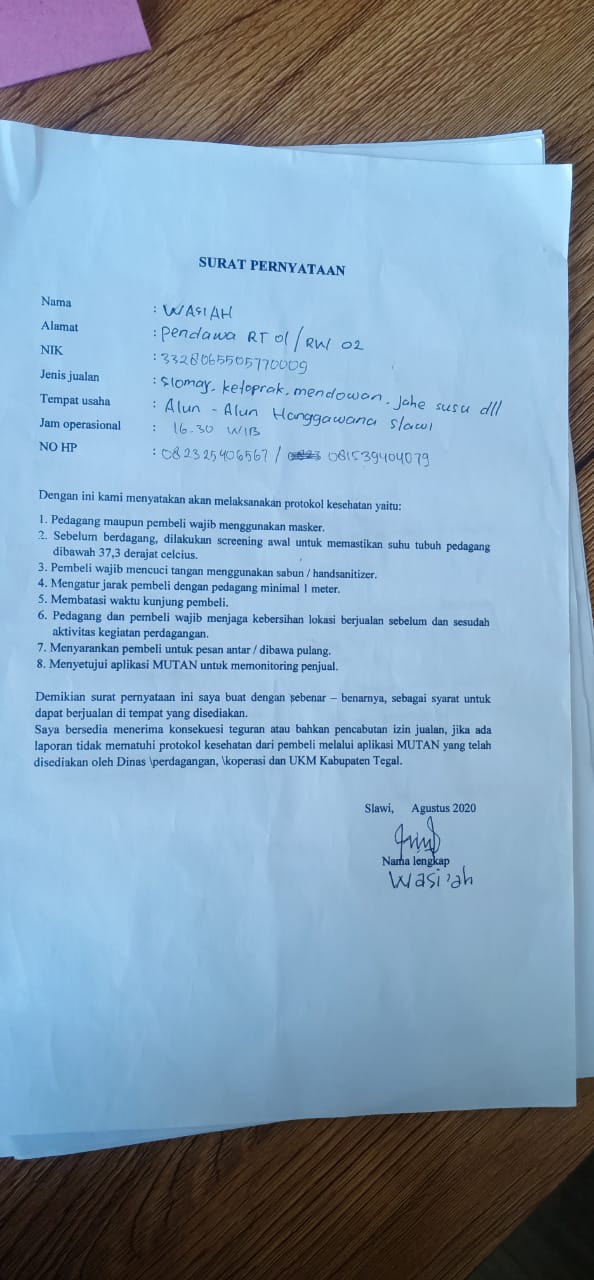 SURAT PERNYATAAN
Nama : WASIAH
Alamat : Pendawa RT 01/RW 02
NIK : 3328065505770009
Jenis jualan : Slomay, ketoprak, mendowan, Jahe susu dll
Tempat usaha : Alun - Alun Hanggawana Slawi
Jam operasional : 16.30 WIB
NO HP : 082325406567 / 081539404079
Dengan ini kami menyatakan akan melaksanakan protokol kesehatan yaitu:
1. Pedagang maupun pembeli wajib menggunakan masker.
2. Sebelum berdagang, dilakukan screening awal untuk memastikan suhu tubuh pedagang
dibawah 37,3 derajat celcius.
3. Pembeli wajib mencuci tangan menggunakan sabun / handsanitizer.
4. Mengatur jarak pembeli dengan pedagang minimal 1 meter.
5. Membatasi waktu kunjung pembeli.
6. Pedagang dan pembeli wajib menjaga kebersihan lokasi berjualan sebelum dan sesudah
aktivitas kegiatan perdagangan.
7. Menyarankan pembeli untuk pesan antar / dibawa pulang.
8. Menyetujui aplikasi MUTAN untuk memonitoring penjual.
Demikian surat pernyataan ini saya buat dengan sebenar – benarnya, sebagai syarat untuk
dapat berjualan di tempat yang disediakan.
Saya bersedia menerima konsekuesi teguran atau bahkan pencabutan izin jualan, jika ada
laporan tidak mematuhi protokol kesehatan dari pembeli melalui aplikasi MUTAN yang telah
disediakan oleh Dinas \perdagangan, \koperasi dan UKM Kabupaten Tegal.
Slawi, Agustus 2020
Nama lengkap
Wasi'ah